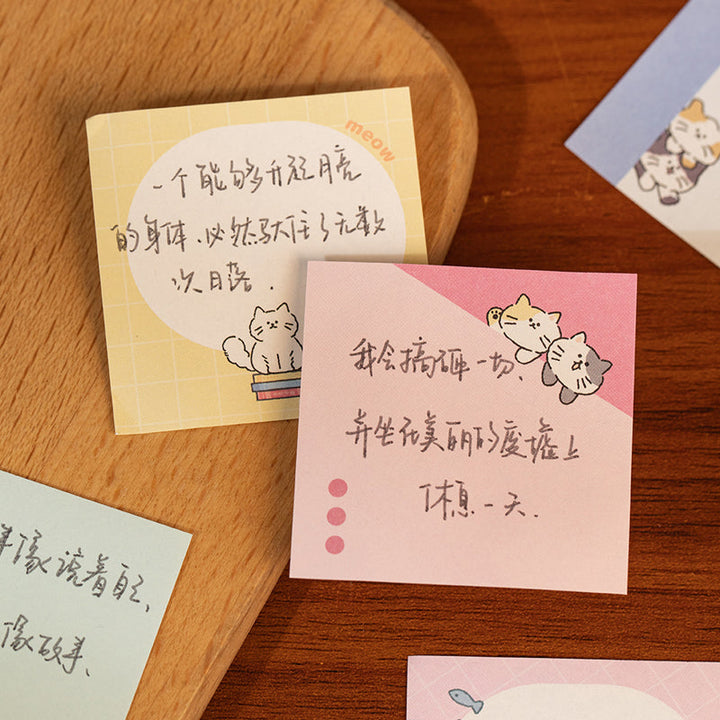 meow
一个能够升起月亮
的身体、必然驮住了无数
次日落.
我会搞砸一切、
弃坐在美丽的废墟上
休息一天.
像说着自己、
像故事、